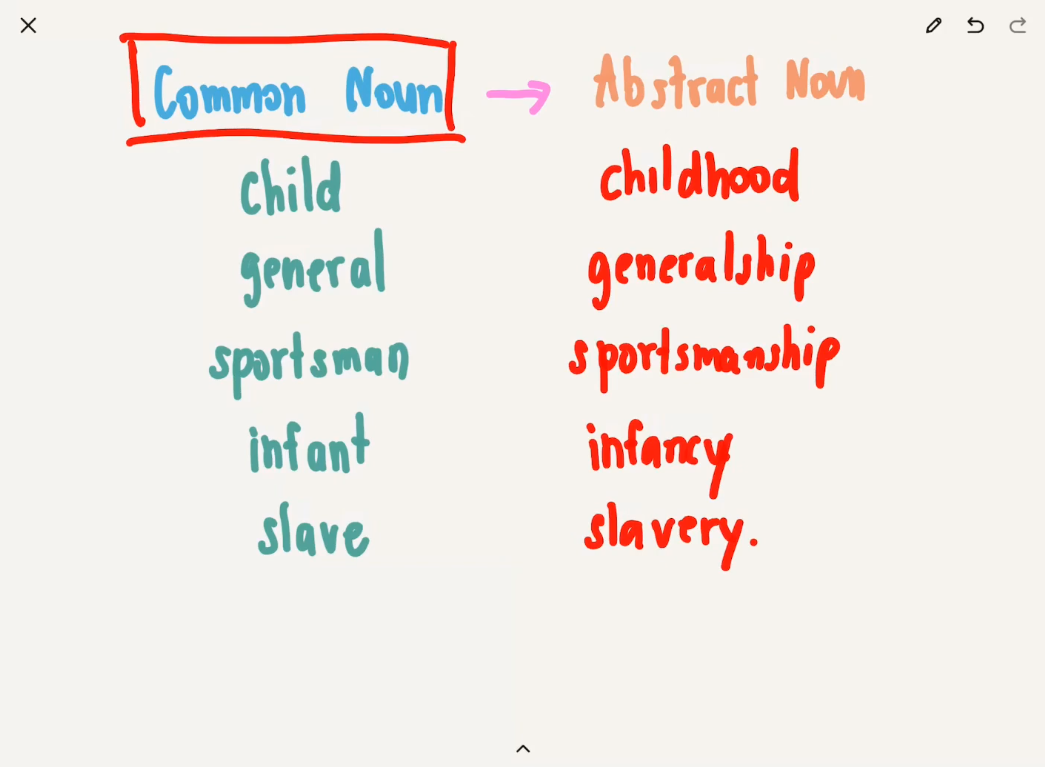 Common Noun → Abstract Noun
child childhood
general generalship
sportsman sportsmanship
infant infancy
slave slavery.